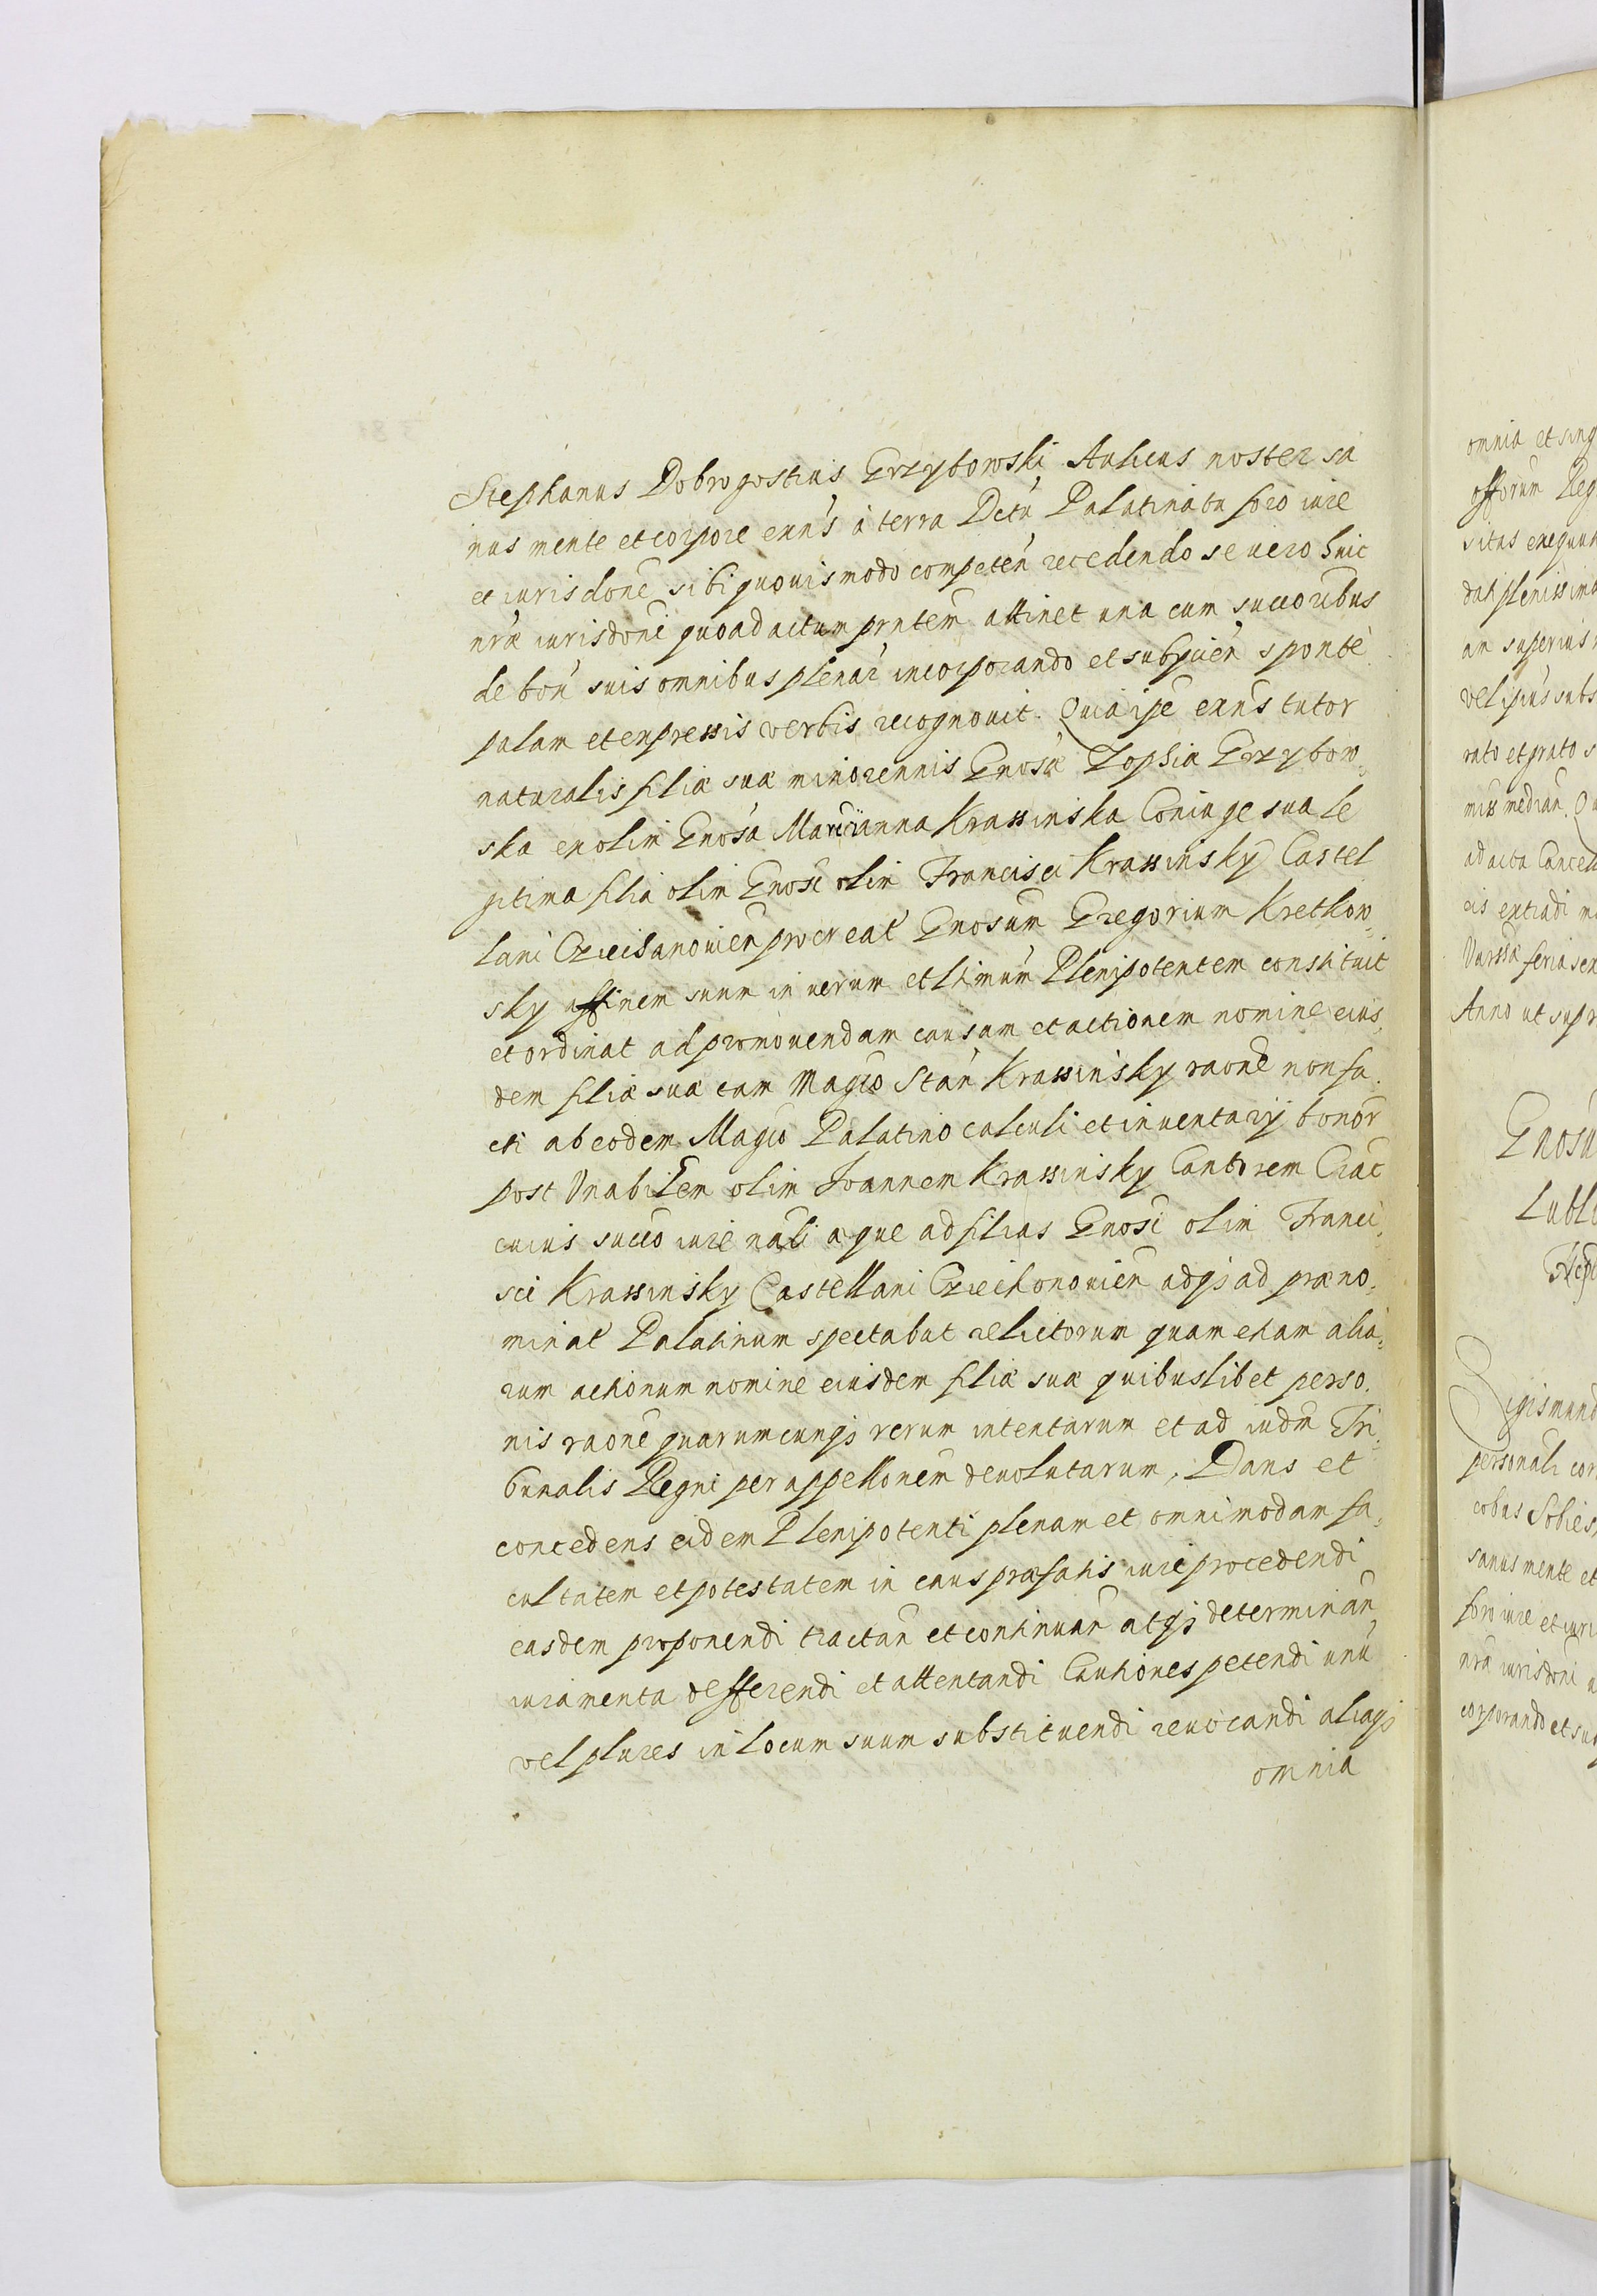 Stephanus Dobrogostius Grzybowski Aulicus noster sa
nus mente et corpore exn's à terra Dctu Palatinatu foro iure
et iurisdone sibi quouismodo competen recedendo se uero huic
nrae iurisdoni quoad actum prntem attinet una cum succoribus
de bon suis omnibus plenar incorporando et subyicien sponte
palam et expressis verbis recognouit. Quia ipe exns tutor
naturalis filiæ suæ minorennis Gnosæ Zophiæ Grzybow„
ska ex olim Gnosa Marianna Krassinska Coniuge sua le
gitima filia olim Gnosi olim Francisci Krassinsky Castel
lani Cziechanouien procreat Gnosum Gregorium Kretkow„
sky affinem suum in uerum et lhimum Plenipotentem constituit
et ordinat ad promouendam causam et actionem nomine eius„
dem filiæ suæ cum Magco Stan Krassinsky raone non fa„
cti ab eodem Magco Palatino calculi et inuentarij bonor
post Vnabilem olim Joannem Krassinsky Cantorem Crac
cuius succo iure nali æque ad filias Gnosi olim Franci„
sci Krassinsky Castellani Cziechonouien adqs ad præno„
minat Palatinum spectabat relictorum quam etiam alia„
rum actionum nomine eiusdem filiæ suæ quibuslibet perso„
nis raone quarumcunqs rerum intentarum et ad iudm Tri„
bunalis Regni per appellonem deuolutarum, Dans et
concedens eidem Plenipotenti plenam et omnimodam fa„
cultatem et potestatem in caus præfatis iure procedendi
easdem proponendi tractan et continuan atqs determinan
iuramenta defferendi et attentandi Cautiones petendi unu
vel plures in locum suum substituendi reuocandi aliaqs
omnia
omnia et sing
offorum Reg
sitas exequun
dat plenissima
an superius
vel ipius subs
rato et grato
miss median. Qu
ad acta Cancell
cis extradi
Varssa feria sex
Anno ut supr
Gnosu
Lubli
Sigismund
personali con
cobus Sobies
sanus mente et
foro iure et iuri
nra iurisdoni
corporando et sub